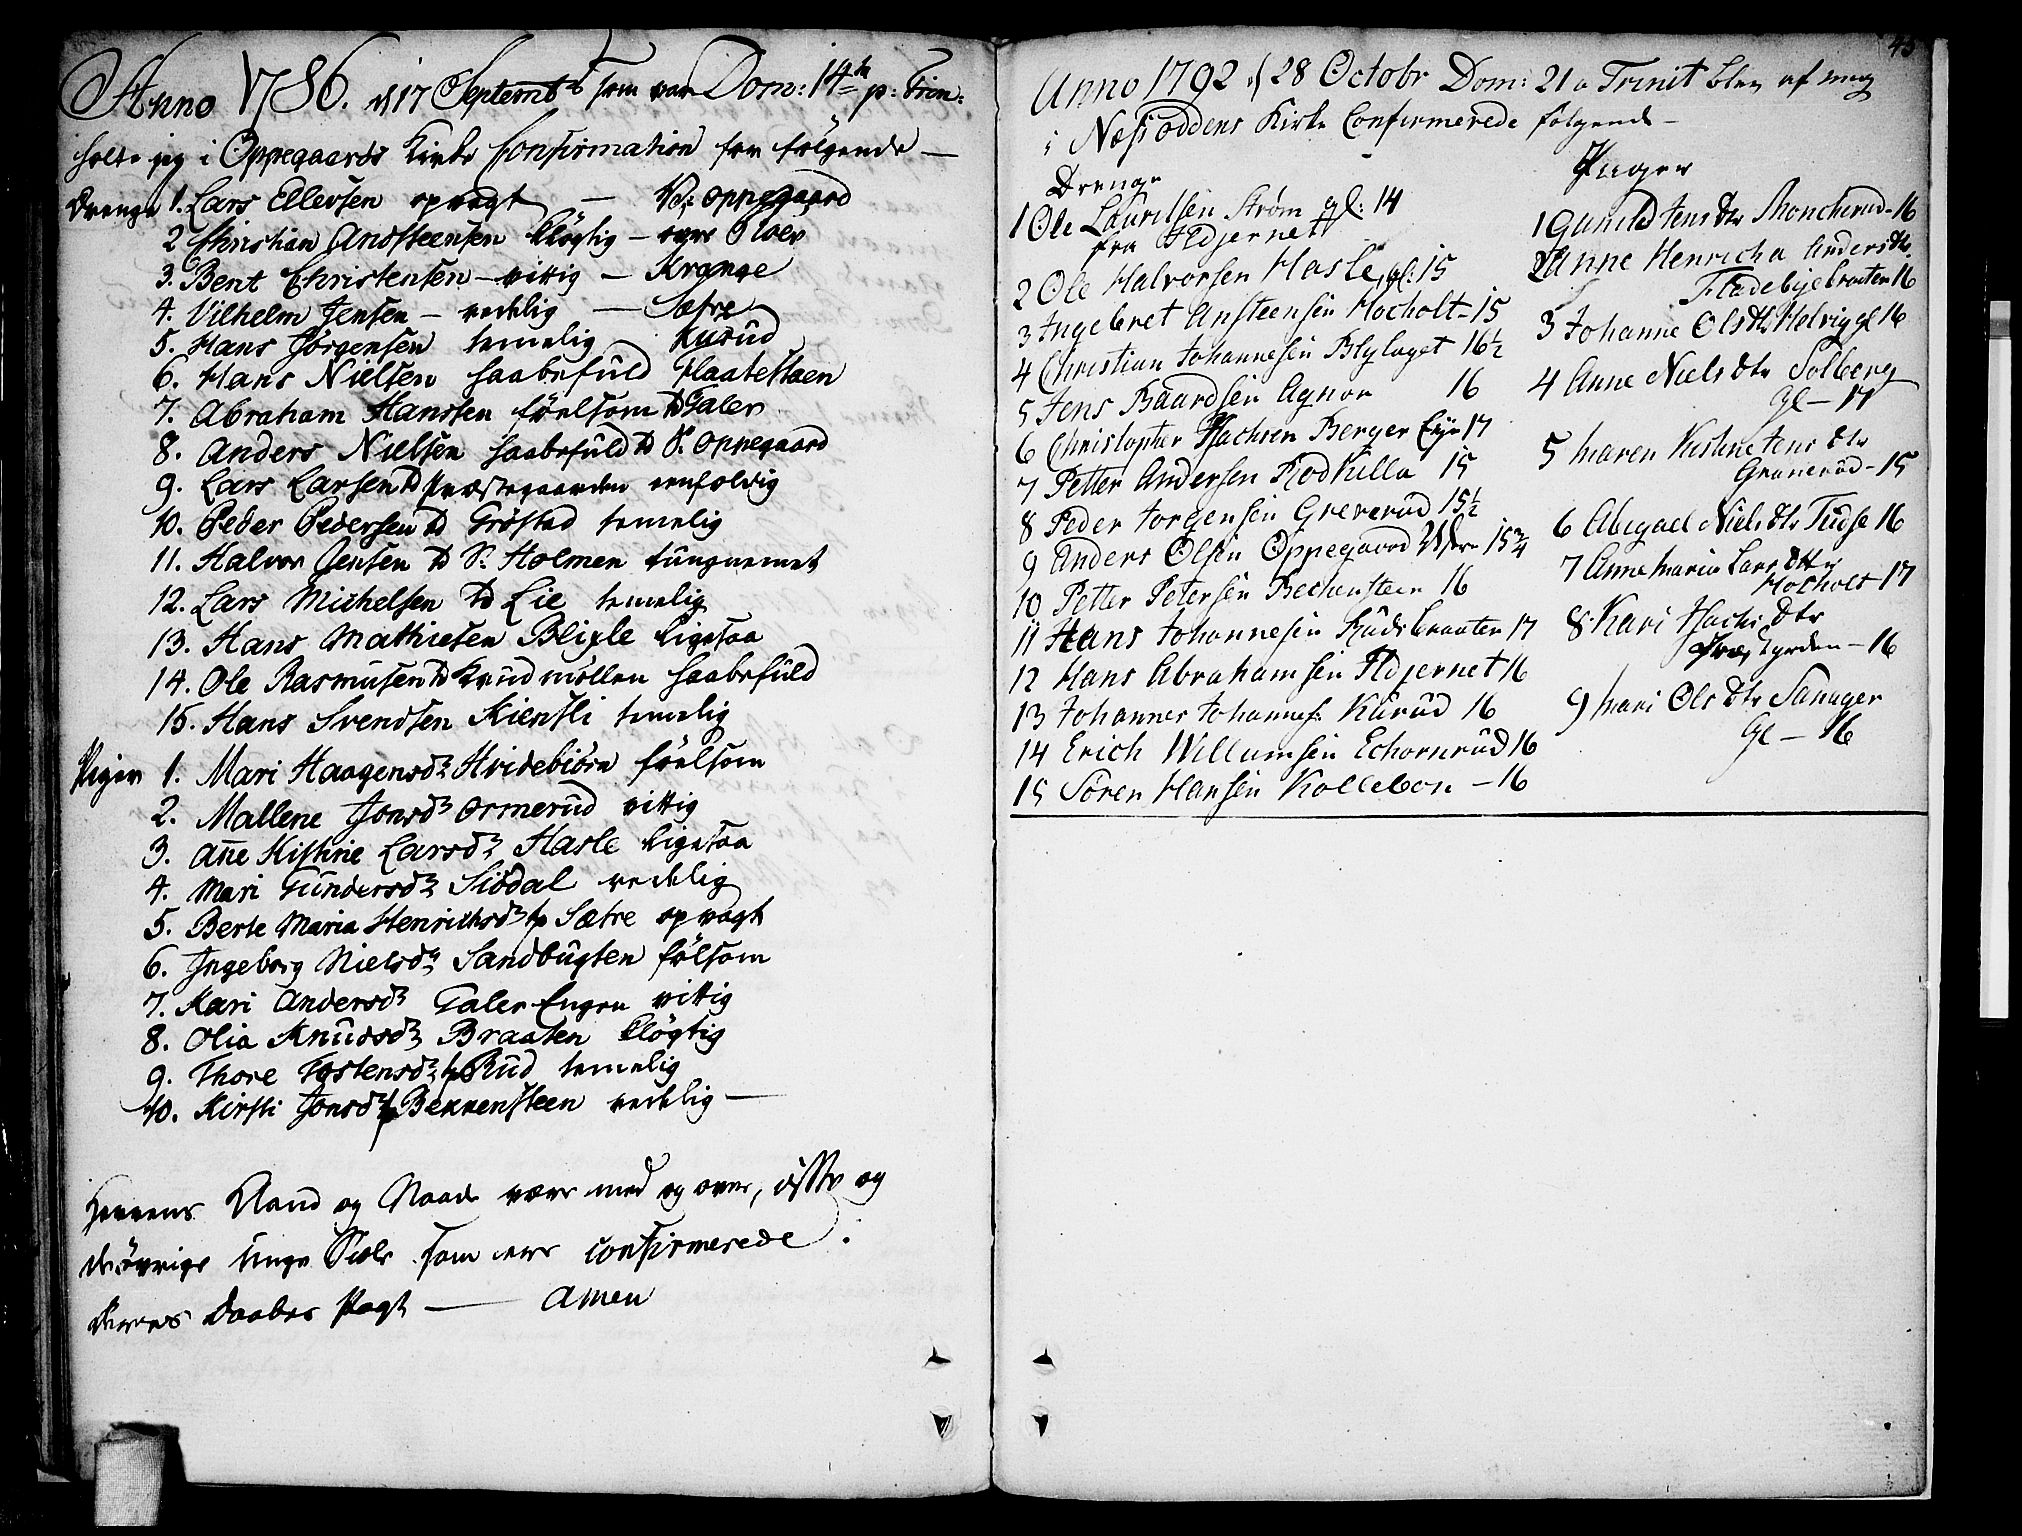 Anno 1786. d 17 Septembr som var Dom: 14de p: Trin:
holte jeg i Oppegaards Kirke Confirmation for følgende —
Drenge 1. Lars Ellevsen opvagt — Oppegaard
2 Christian Andsteensen kløgtig —
3. Bent Christensen — vittig — Krange
4. Vilhelm Jensen — — Sætre
5. Hans Jörgensen temelig Kurud
6. Hans Nielsen haabefuld
7. Abraham Hanssen följsom Galer
8. Anders Nielsen haabefuld Oppegaard
9. Lars Larsen Præstegaarden eenfoldig
10. Peder Pedersen Fröstad temelig
11. Halvor Jensen S. Holmen tungnemet
12. Lars Michelsen Lie temelig
13. Hans Mathiesen Blixle ligesaa
14. Ole Rasmusen møllen haabefuld
15. Hans Svendsen Kiensli temelig
Piger 1. Mari Haagensdr Hvidebiörn följsom
2. Mallene Jonsdr Ormerud vittig
3. Añe Kistine Larsdr Hasle ligesaa
4. Mari Gundersdr Siödal
5. Berte Maria Henrichsdr Sætre opvagt
6. Ingeborg Nielsdr Sandbugten fölsom
7. Kari Andersdr Galer Engen vittig
8. Olia Knudsdr Braaten kløgtig
9. Thore Tostensdr Rud temelig
10. Kirsti Jonsdr Bekkensteen —
Herrens Aand og Naade være med og over disse og
de övrige unge Siæle som ere confirmerede
deres Daabes Pagt — Amen
43
Anno 1792 d 28 Octobr Dom: 21 a Trinit blev af mig
i Nesioddens Kirke Confirmerede følgende —
Drenge
1 Ole Lauritsen Strøm gl: 14
fra Fldjernet
2 Ole Halvorsen Hasle, gl: 15
3 Ingebret Ansteensen Hocholt — 15
4 Christian Johannesen Blylaget 16½
5 Jens Baardsen Agnor 16
6 Christopher Hachsen Berger Eije 17
7 Petter Andersen Rodkilla 15
8 Peder Jorgensen Greverud 15½
9 Anders Olsen Oppegaard 15¾
10 Petter Petersen Bechensteen 16
11 Hans Johannesen Rudsbraaten 17
12 Hans Abrahamsen Fldjernet 16
13 Johannes Johannes: Kurud 16
14 Erich Willumsen Echornrud 16
15 Søren Hansen Kollebon — 16
Piger
1 Gunild Jens Dtr Moncherud — 16
2 Anne Henricha Anders Dtr
Fladebyebraaten 16
3 Johanne Ols Dtr Helvig gl 16
4 Anne Niels Dtr Solberg
Gl — 17
5 Maren Kistine Jens Dtr
Granerud — 15
6 Abigael Niels Dtr Tudse 16
7 Anne Maria Lars Dtr
Hocholt 17
8 Kari Hachs Dtr
— 16
9 Mari Ols Dtr Sanager
Gl — 16